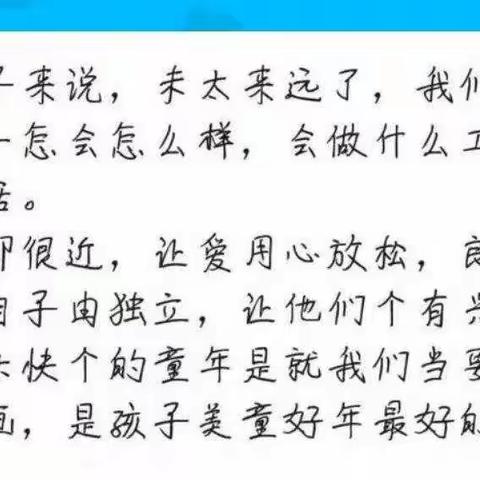 子来说，未太来远了，我们
怎会怎么样，会做什么工
活。
很近，让爱用心放松，
子由独立，让他们个有兴
快个的童年是就我们当要
画，是孩子美童好年最好的